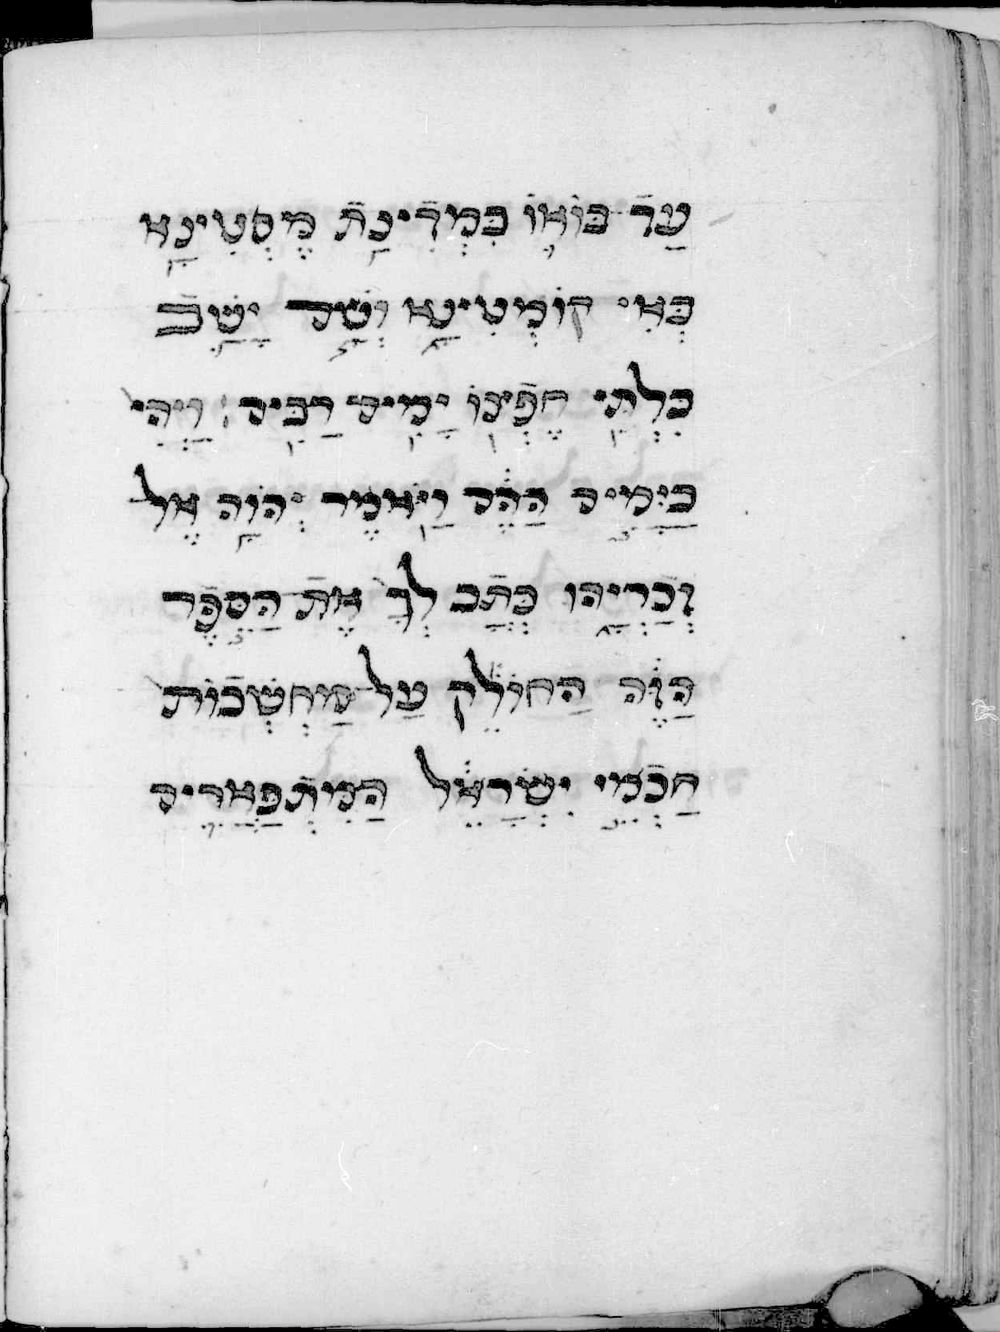 עַד בּוֹאוֹ בִּמְדִינַת מֶסְטִינָא
בְּאִי קוֹמְטִינָא וְשָׁם יָשַׁב
בְּלְתִּי חֶפְצוֹ יָמִים רַבִּים וַיְהִי
בַּיָּמִים הַהֵם וַיֹּאמֶר יְהוָֹה אֶל
זְכַרְיָהוּ כְּתָב לְךָ אֶת הַסֵּפֶר
הַזֶּה הַחוֹלֵק עַל מַחְשְׁבוֹת
חַכְמֵי יִשְׂרָאֵל הַמִּתְפָּאֲרִים